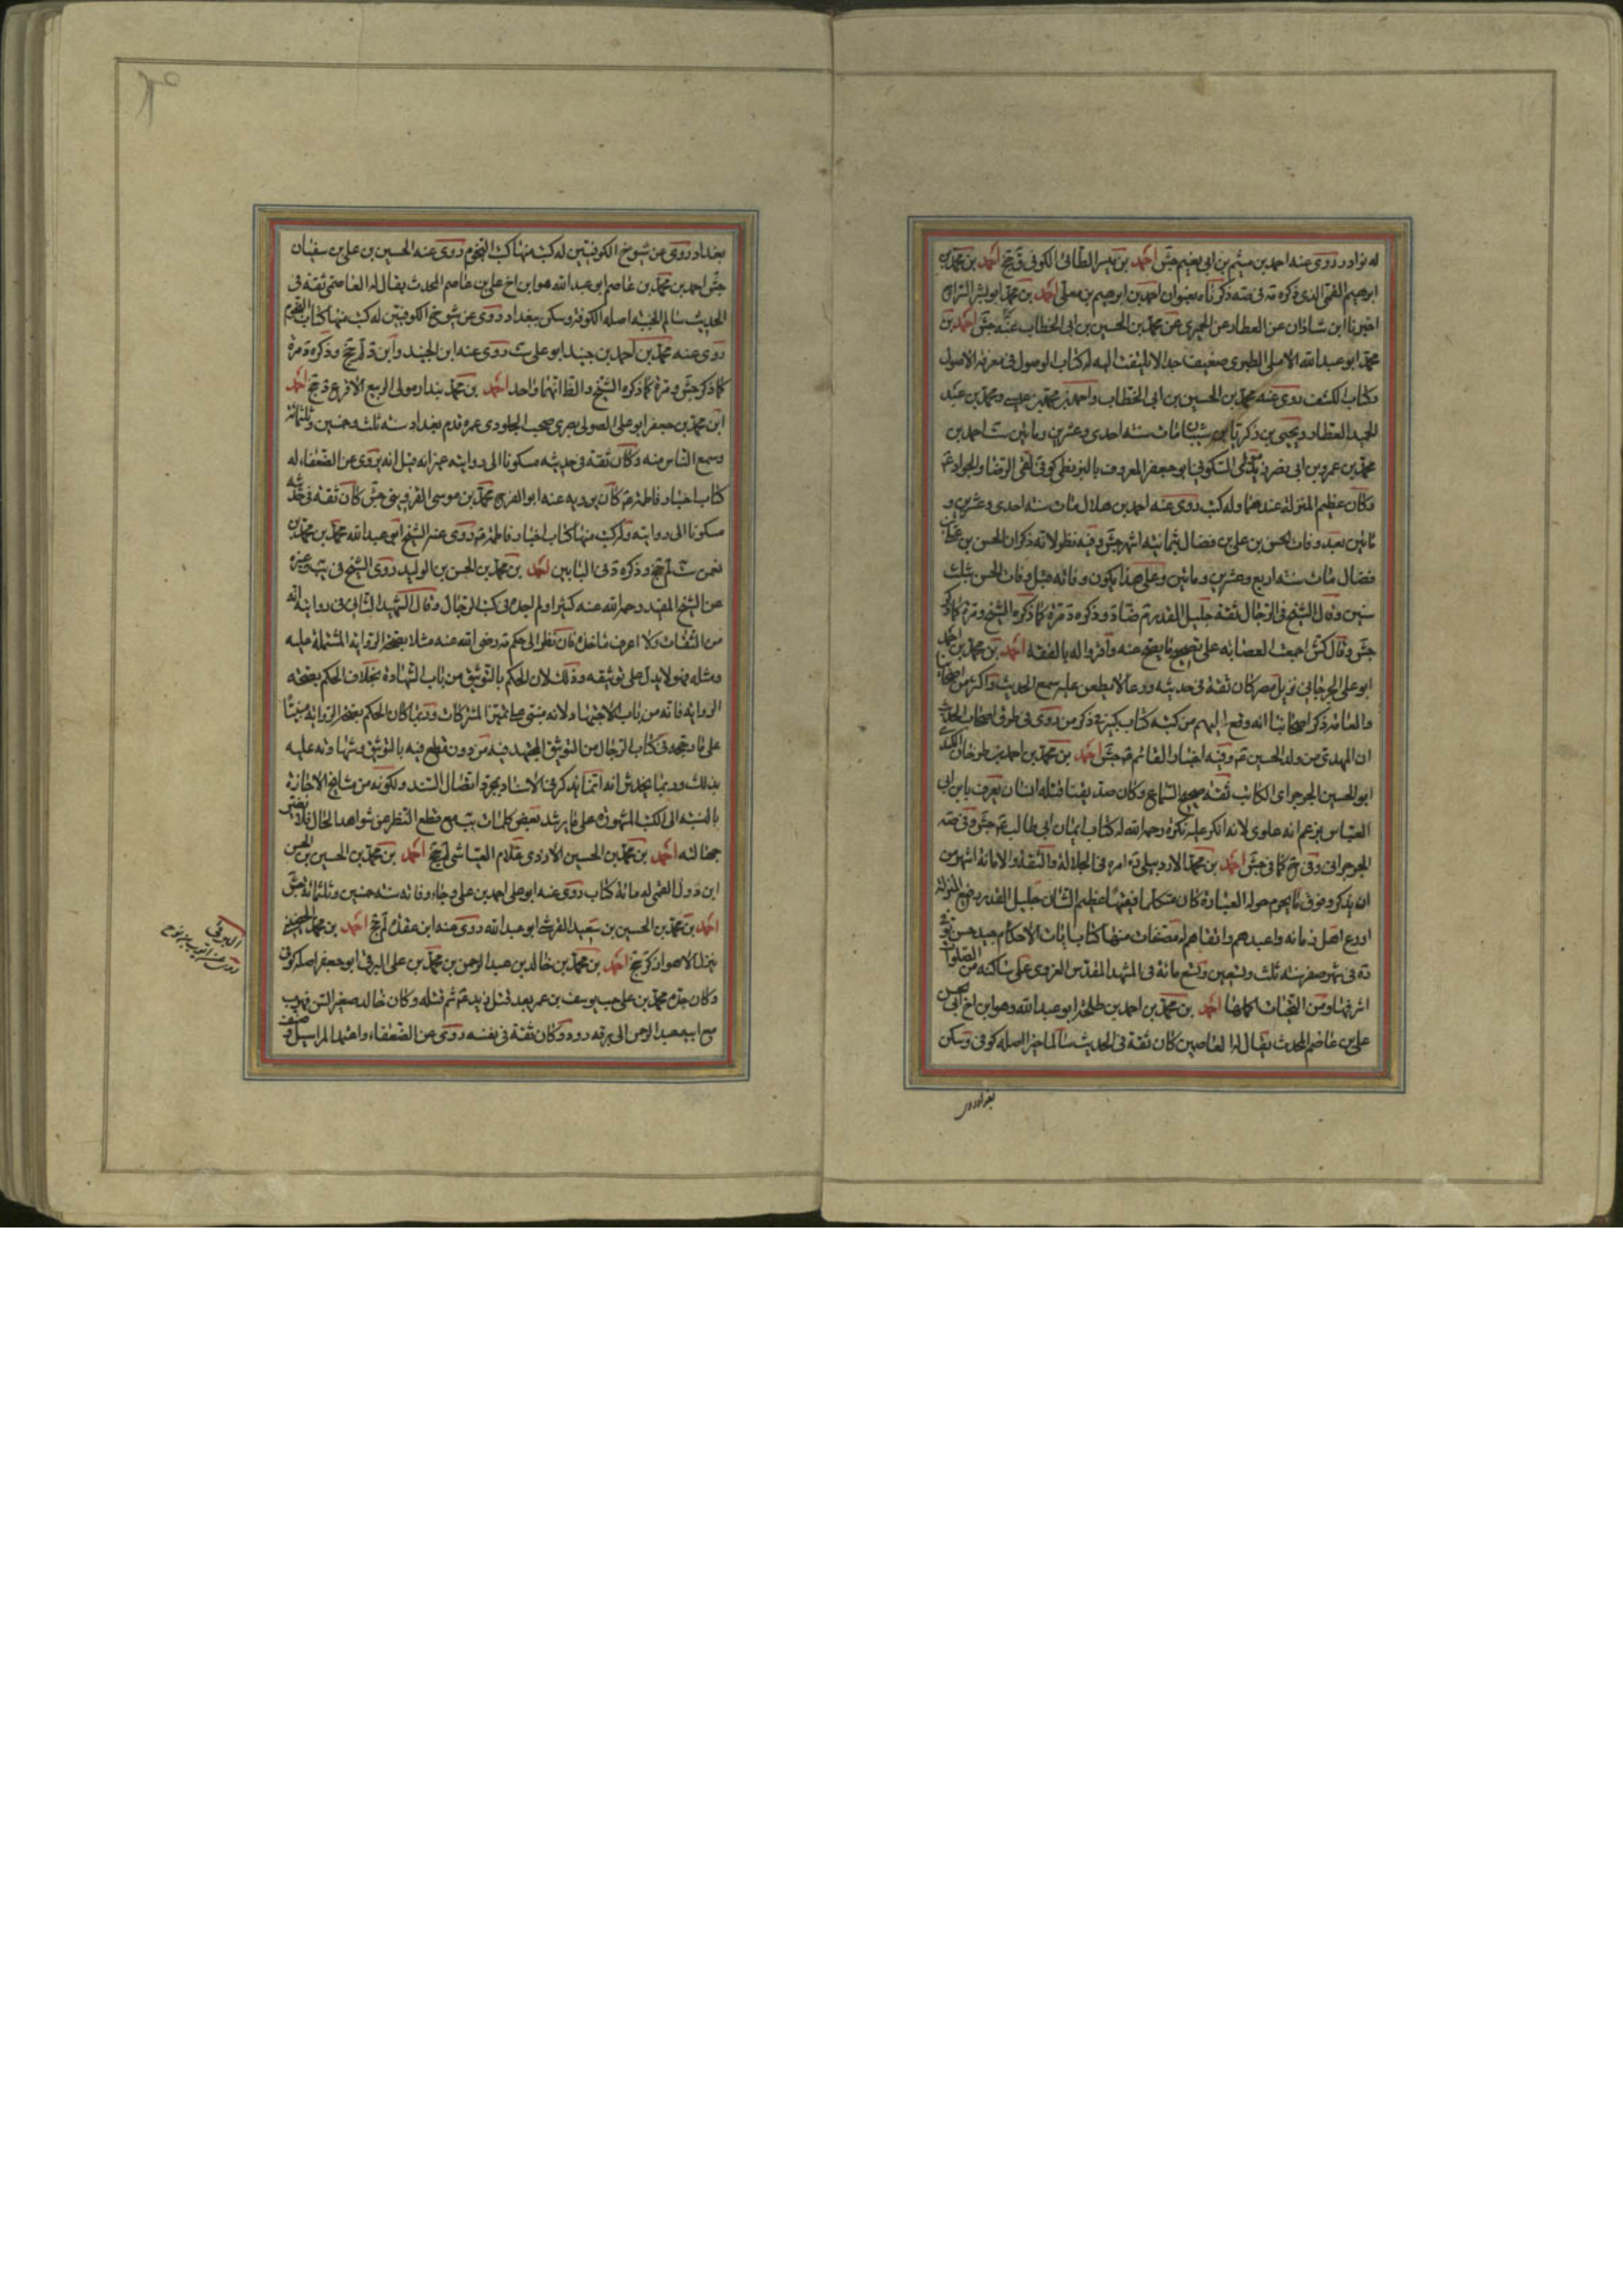 له نوادر روى عنه احمد بن ميثم بن ابى نعيم جش احمد بن ميسر الطائى الكوفى ق جخ احمد بن محمد بن
ابرهيم القمى الذى ذكره بعنوان احمد بن ابرهيم بن معلى احمد بن محمد ابو بشر السراج
اخبرنا ابن شاذان عن العطار عن الحميرى عن محمد بن الحسين بن ابى الخطاب عنه جش احمد بن
محمد ابو عبد الله الاملى الطبرى ضعيف جدا لا يلتفت اليه له كتاب الوصول فى معرفة الاصول
وكتاب الكشف روى عنه محمد بن الحسين بن ابى الخطاب واحمد بن محمد بن عيسى ومحمد بن عبد
الحميد العطار ويحيى بن زكريا بن شيبان مات سنه احدى وعشرين ومائين ست احمد بن
محمد بن عمرو بن ابى نصر زيد السكونى ابو جعفر المعروف بالبزنطى كوفى لقى الرضا والجواد ع
وكان عظيم المنزلة عندهما وله كتب روى عنه احمد بن هلال مات سنه احدى وعشرين و
مائين بعد وفات الحسن بن على بن فضال بثمانيه اشهر جش وفيه نظر لانه ذكر ان الحسن بن على بن
فضال مات سنه اربع وعشرين ومائين وعلى هذا يكون وفاته قبل وفات الحسن بثلث
سنين وقال الشيخ فى الرجال ثقه جليل القدر وذكره مرة كما ذكره الشيخ ومرة كما ذكر
جش وقال كش اجمعت العصابه على تصحيح ما يصح عنه واقروا له بالفقه احمد بن محمد بن احمد
ابو على الجرجانى نزيل مصر كان ثقة فى حديثه ورعا لا يطعن عليه سمع الحديث واكثر من اصحابنا
والعامه ذكر اصحابنا انه وقع اليهم من كتبه كتاب كبير فى ذكر من روى فى طرق اصحاب الحديث
ان المهدى من ولد الحسين ع وفيه اخبار القائم ع جش احمد بن محمد بن احمد بن طرخان الكندى
ابو الحسين الجرجراى الكاتب ثقه صحيح السماع وكان صديقنا قتله انسان يعرف بابن ابى
العباس يزعم انه علوى لانه انكر عليه نكرة رحمه الله له كتاب ايمان ابى طالب ع جش
الجرجرانى وفى كما فى جش احمد بن محمد الاردبيلى امره فى الجلالة والثقة والامانة اشهر من
ان يذكر وفوق ما يحوم حوله العبارة كان متكلما فقيها عظيم الشان جليل القدر رفيع المنزلة
اورع اهل زمانه واعبدهم واتقاهم له مصنفات منها كتاب ايات الاحكام جيد حسن توفى
فى شهر صفر سنه ثلث وتسعين وتسع مائة فى المشهد المقدس الغروى على ساكنه من الصلوات
اشرفها ومن التحيات اكملها احمد بن محمد بن احمد بن طلحة ابو عبد الله وهو ابن اخ ابى الحسن
على بن عاصم المحدث يقال له العاصمى كان ثقة فى الحديث سالما خيرا اصله كوفى وسكن
بغداد روى
بغداد روى عن شيوخ الكوفيين له كتب منها كتاب النجوم روى عنه الحسين بن على بن سفيان
جش احمد بن محمد بن عاصم ابو عبد الله هو ابن اخ على بن عاصم المحدث يقال له العاصمى ثقة فى
الحديث سالم الجنبه اصله الكوفة وسكن بغداد روى عن شيوخ الكوفيين له كتب منها كتاب النجوم
روى عنه محمد بن احمد بن جنيد ابو على ست روى عنه ابن الجنيد وابن داود لم جخ وذكره مرة
كما ذكر جش ومرة كما ذكره الشيخ والظ انهما واحد احمد بن محمد بندار مولى الربيع الاقرع ق جخ احمد
ابن محمد بن جعفر ابو على الصولى بصرى صحب الجلودى عمره قدم بغداد سنه ثلث وخمسين وثلثمائة
وسمع الناس منه وكان ثقة فى حديثه مسكونا الى روايته غير انه قيل انه يروى عن الضعفاء له
كتاب اخبار فاطمه ع كان يرويه عنه ابو الفرج محمد بن موسى القزوينى جش كان ثقة فى حديثه
مسكونا الى روايته وله كتب منها كتاب اخبار فاطمه ع روى عنه الشيخ ابى عبد الله محمد بن محمد بن
نعمن ست لم جخ وذكره فى البابين احمد بن محمد بن الحسن بن الوليد روى الشيخ فى يب وغيره
عن الشيخ المفيد رحمه الله عنه كثيرا ولم اجده فى كتب الرجال وقال الشهيد الثانى فى روايته انه
من الثقات ولا اعرف ماخذه فان نظر الى حكم رضى الله عنه مثلا بصحة الرواية المشتملة عليه
ومثله فهو لا يدل على توثيقه وذلك لان الحكم بالتوثيق من باب الشهادة بخلاف الحكم بصحة
الرواية فانه من باب الاجتهاد لانه مبتنى على تميز المشتركات وربما كان الحكم بصحة الرواية مبنيا
على ما رجحه فى كتاب الرجال من التوثيق المجتهد فيه من دون قطع فيه بالتوثيق وشهادته عليه
بذلك وربما يخدش انه انما يذكر فى الاسناد بمجرد اتصال السند ولكونه من مشايخ الاجازة
بالنسبه الى الكتب المشهورة على ما يرشد بعض كلمات يب مع قطع النظر عن شواهد الحال فلا يضر
جهالته احمد بن محمد بن الحسين الازدى غلام العياشى لم جخ احمد بن محمد بن الحسين بن الحسن
ابن دول القمى له مائة كتاب روى عنه ابو على احمد بن على وجاء وفاته سنه خمسين وثلثمائة جش
احمد بن محمد بن الحسين بن سعيد القرشى ابو عبد الله روى عنه ابن عقده لم جخ احمد بن محمد الحضينى
ينزل الاهواز كر جخ احمد بن محمد بن خالد بن عبد الرحمن بن محمد بن على البرقى ابو جعفر اصله كوفى
وكان جده محمد بن على حبسه يوسف بن عمر بعد قتل زيد ع ثم قتله وكان خالد صغير السن فهرب
مع ابيه عبد الرحمن الى برقه رود وكان ثقة فى نفسه روى عن الضعفاء واعتمد المراسيل وصنف
البرقى